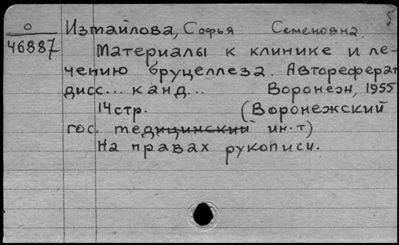 о Измайлова, Софья Семеновна.
46887 Материалы к клинике и ле-
чению бруцеллеза. Автореферат
дисс... канд... Воронеж, 1955
14стр. (Воронежский
гос. медицинский ин-т)
На правах рукописи.